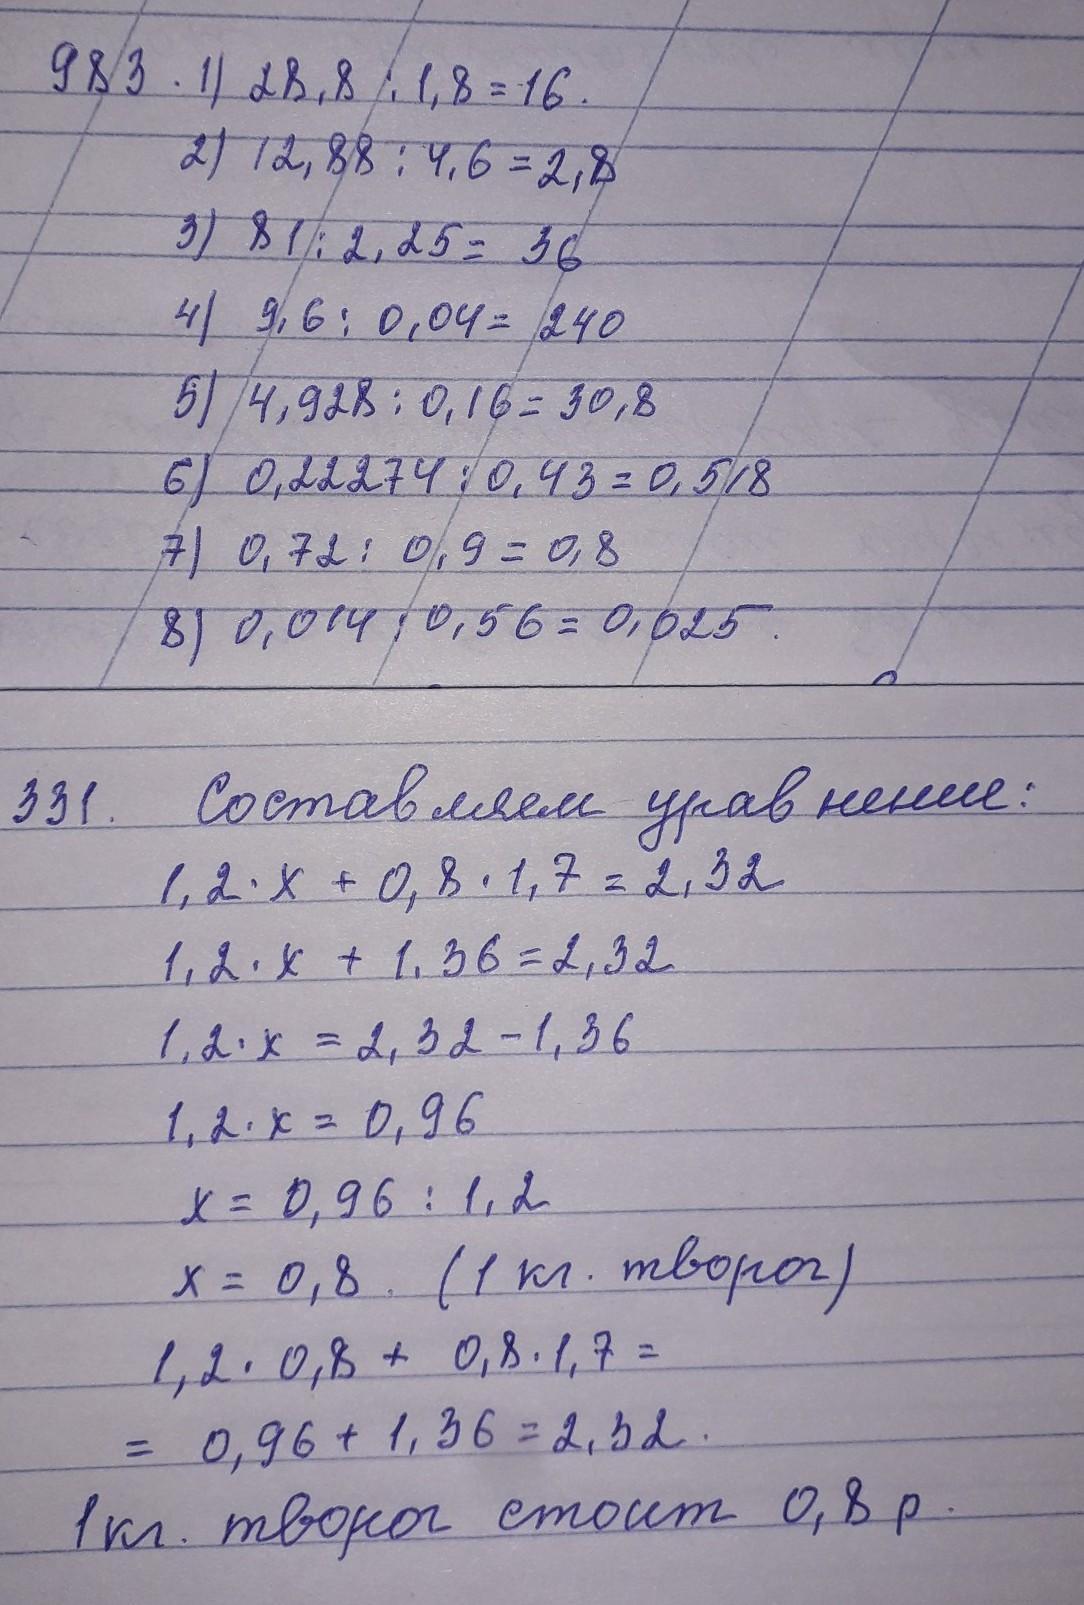 983. 1) 28,8 : 1,8 = 16.
2) 12,88 : 4,6 = 2,8
3) 81 : 2,25 = 36
4) 9,6 : 0,04 = 240
5) 4,928 : 0,16 = 30,8
6) 0,22274 : 0,43 = 0,518
7) 0,72 : 0,9 = 0,8
8) 0,014 : 0,56 = 0,025.
331. Составляем уравнение:
1,2 · x + 0,8 · 1,7 = 2,32
1,2 · x + 1.36 = 2,32
1,2 · x = 2,32 - 1,36
1,2 · x = 0,96
x = 0,96 : 1,2
x = 0,8. (1 кг. творог)
1,2 · 0,8 + 0,8 · 1,7 =
= 0,96 + 1,36 = 2,32.
1 кг. творог стоит 0,8 р.